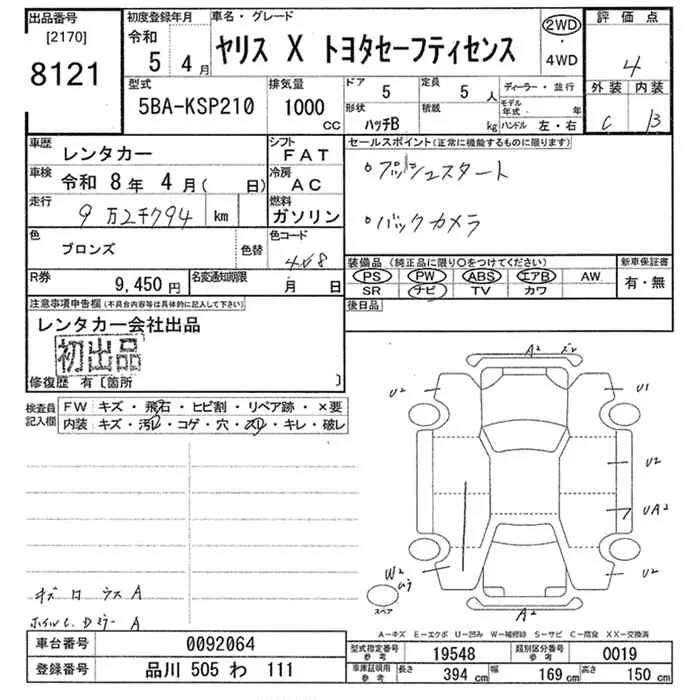 出品番号
[2170]
8121
初度登録年月
令和
5 4 月
車名・グレード
ヤリス X トヨタセーフティセンス
2WD
・
4WD
評価点
4
外装 内装
C B
型式
5BA-KSP210
排気量
1000
CC
ドア 5
形状
ハッチB
定員 5 人
積載 kg
ディーラー・並行
モデル年式 年
ハンドル 左・右
車歴
レンタカー
シフト
FAT
車検 令和 8 年 4 月( 日)
冷房
AC
走行
9万2千794 km
燃料
ガソリン
色
ブロンズ
色替
色コード
4V8
R券
9,450 円
名変通知期限
月 日
セールスポイント(正常に機能するものに限ります)
・プッシュスタート
・バックカメラ
装備品 (純正品に限り〇をつけてください)
PS PW ABS エアB AW
SR ナビ TV カワ
新車保証書
有・無
後日品
注意事項申告欄(不具合内容等は具体的に記入して下さい)
レンタカー会社出品
初出品
修復歴 有〔箇所 〕
検査員記入欄
FW キズ・飛石・ヒビ割・リペア跡・×要
内装 キズ・汚レ・コゲ・穴・スレ・キレ・破レ
A2
U2
U1
U2
UA2
U2
W2
A2
スペア
A
A
A-キズ E-エクボ U-凹み W-補修跡 S-サビ C-腐食 XX-交換済
車台番号 0092064
登録番号 品川 505 わ 111
型式指定番号
参考
19548
類別区分番号
参考
0019
車庫証明用
参考
長さ 394 cm 幅 169 cm 高さ 150 cm